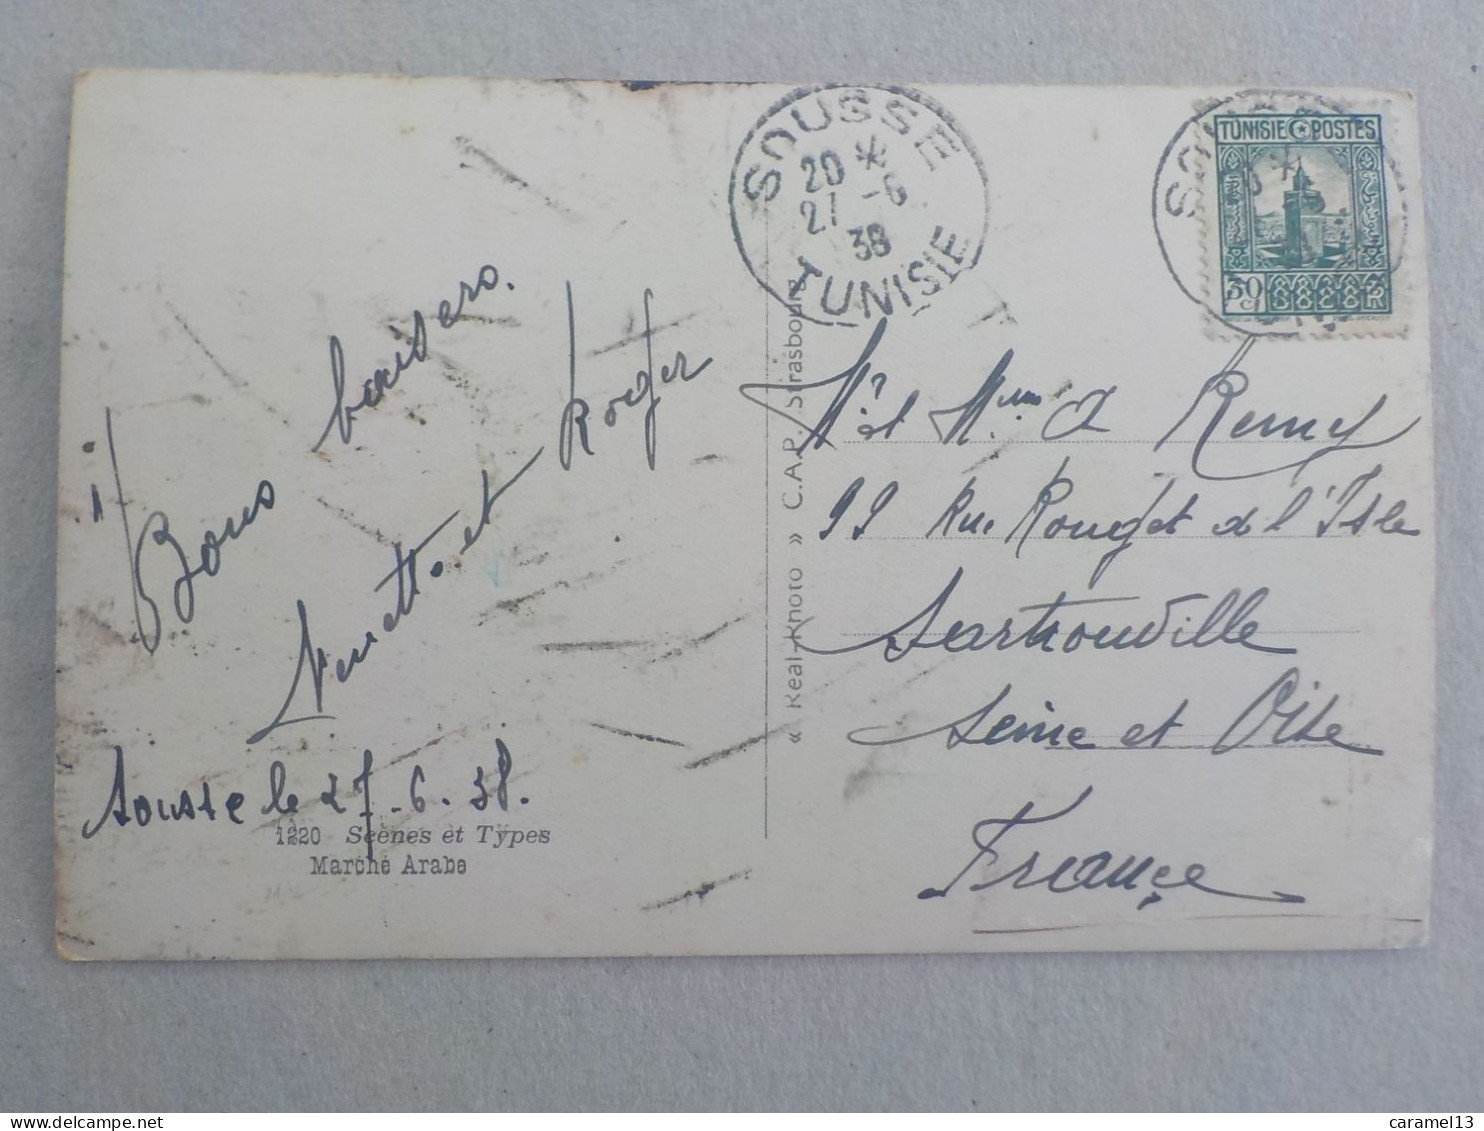 SOUSSE
20 *
27 -6
38
TUNISIE
TUNISIE POSTES
30
Bons baisers.
et Roger
Sousse le 27-6-38.
1220 Scènes et Types
Marché Arabe
« Real-Photo » C.A.P. Strasbourg
Mr et Mme A Remy
99 Rue Rouget de l'Isle
Sartrouville
Seine et Oise
France
caramel13